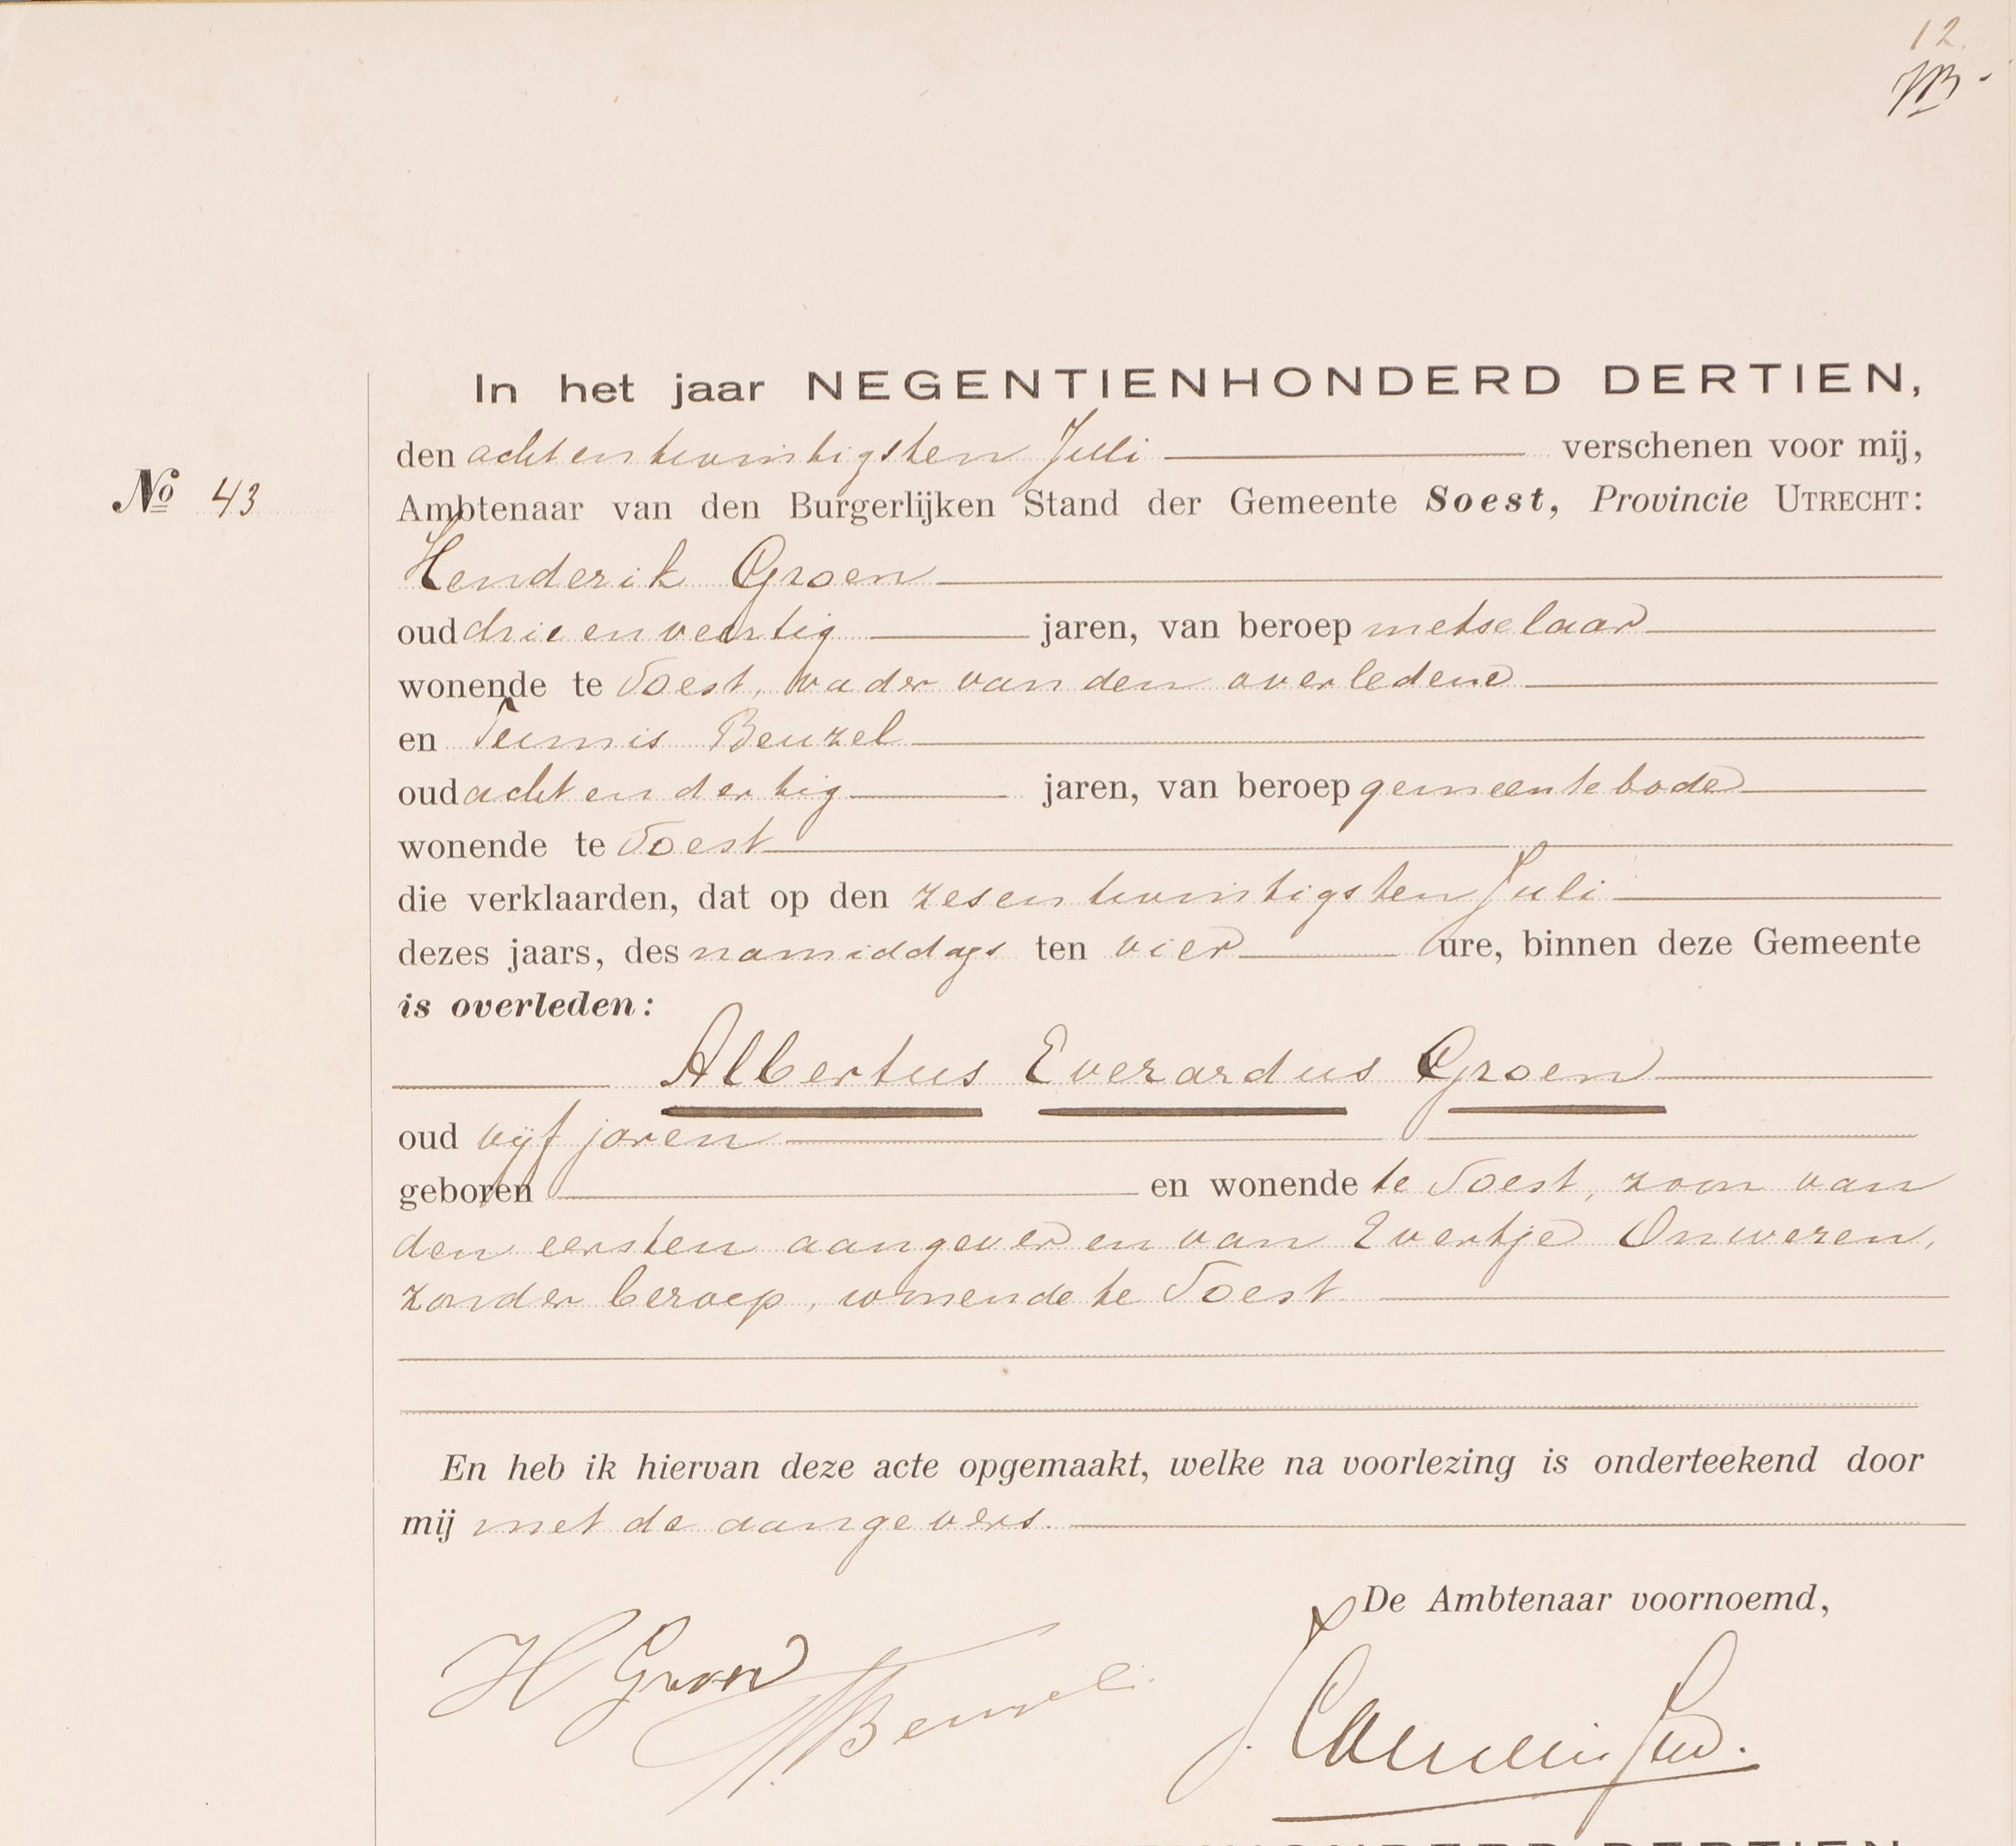 12.
No 43
In het jaar NEGENTIENHONDERD DERTIEN,
den acht en twintigsten Juli verschenen voor mij,
Ambtenaar van den Burgerlijken Stand der Gemeente Soest, Provincie UTRECHT:
Henderik Groen
oud drie en veertig jaren, van beroep metselaar
wonende te Soest, vader van den overledene
en Teunis Beuzel
oud acht en dertig jaren, van beroep gemeentebode
wonende te Soest
die verklaarden, dat op den zes en twintigsten Juli
dezes jaars, des namiddags ten vier ure, binnen deze Gemeente
is overleden:
Albertus Everardus Groen
oud vijf jaren
geboren en wonende te Soest, zoon van
den eersten aangever en van Evertje Onweren,
zonder beroep, wonende te Soest
En heb ik hiervan deze acte opgemaakt, welke na voorlezing is onderteekend door
mij met de aangevers.
De Ambtenaar voornoemd,
H Groen
T. Beuzel